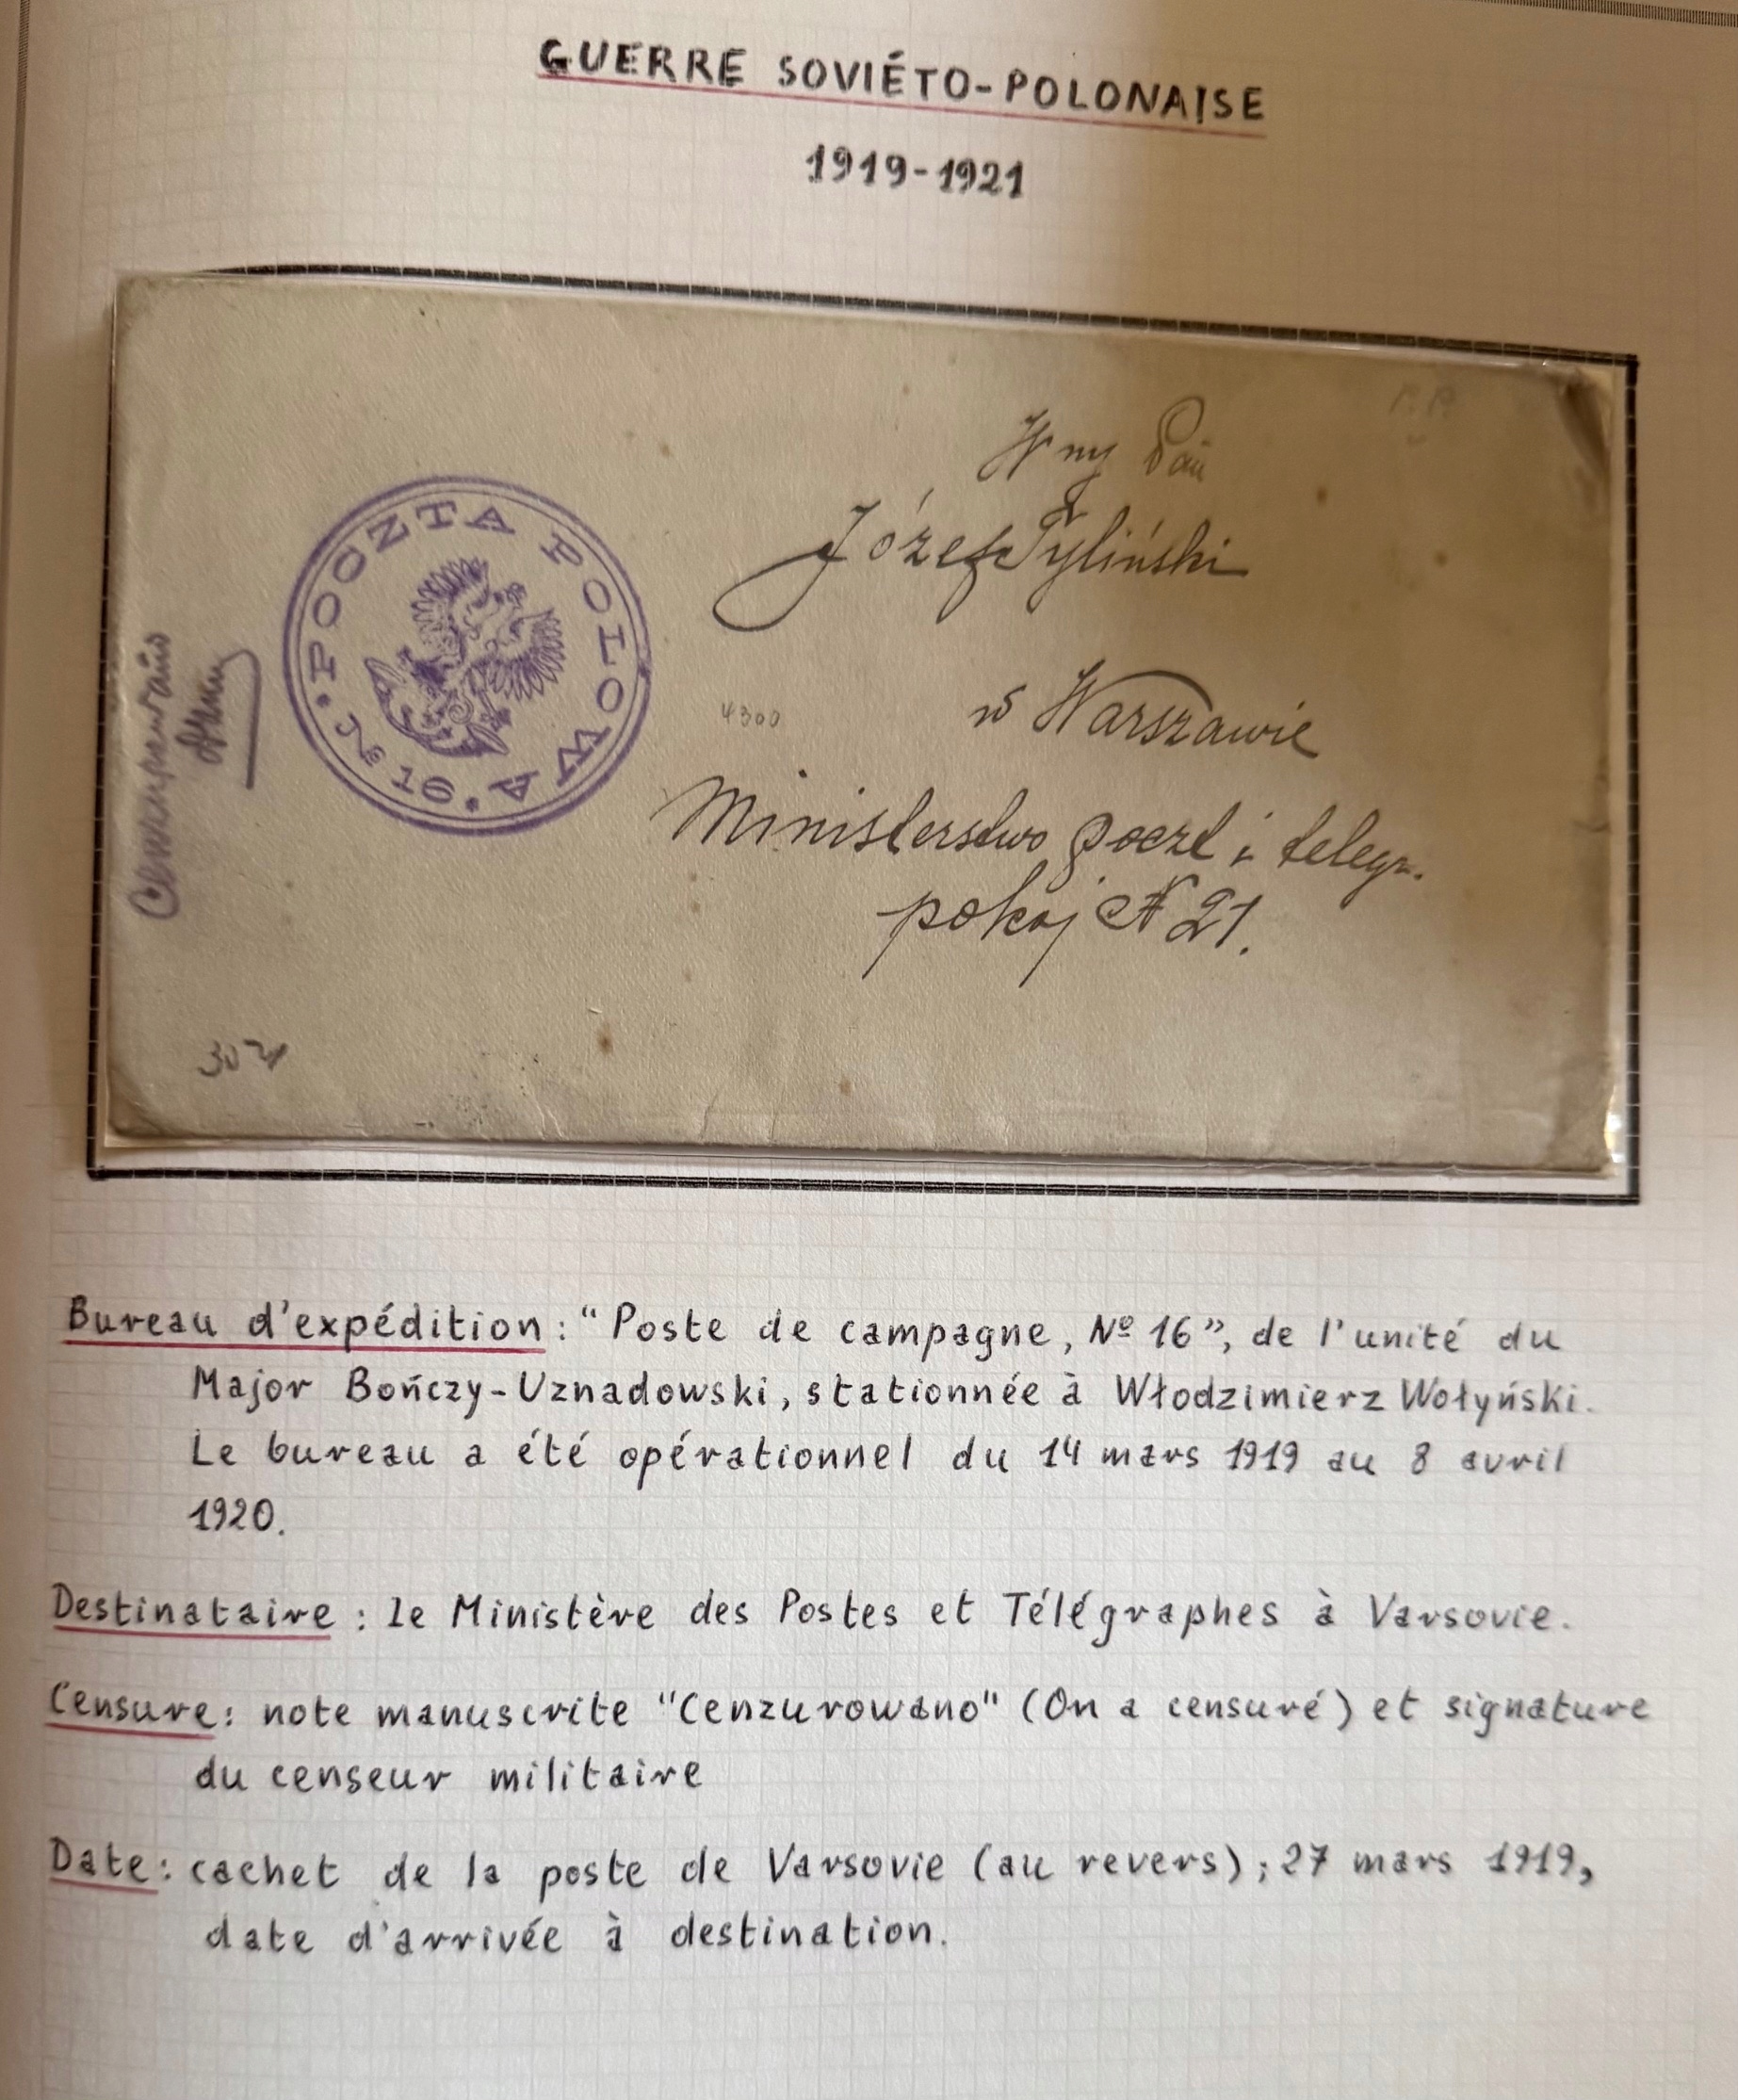 GUERRE SOVIÉTO-POLONAISE
1919-1921
Wny Pan
Józef Tyliński
w Warszawie
Ministerstwo poczt i telegr.
pokój № 21.
POCZTA POLOWA
№ 16
4300
Cenzurowano
Bureau d'expédition: "Poste de campagne, Nº 16", de l'unité du
Major Bończy-Uznadowski, stationnée à Włodzimierz Wołyński.
Le bureau a été opérationnel du 14 mars 1919 au 8 avril
1920.
Destinataire: le Ministère des Postes et Télégraphes à Varsovie.
Censure: note manuscrite "Cenzurowano" (On a censuré) et signature
du censeur militaire
Date: cachet de la poste de Varsovie (au revers); 27 mars 1919,
date d'arrivée à destination.